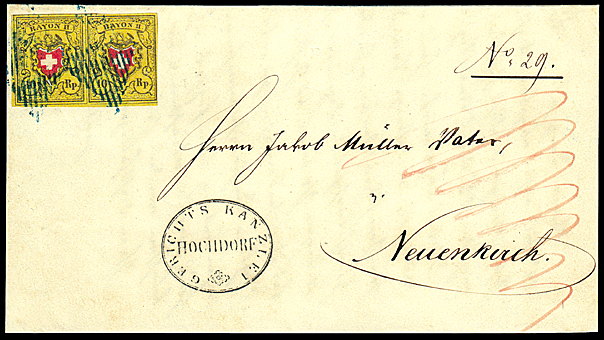 RAYON II RAYON II
10 Rp 10 Rp
No. 29.
Herrn Jakob Müller Vater,
Neuenkirch.
GERICHTS KANZLEI
HOCHDORF